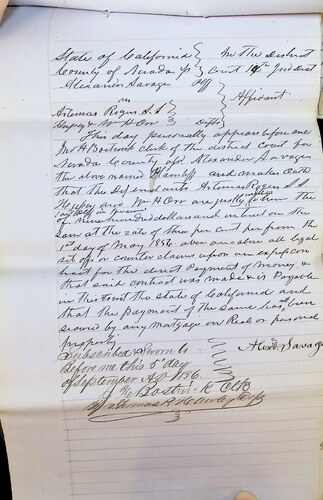 State of California } In The District
County of Nevada ss } Court 14th Jud Dist
Alexander Savage Plff
vs } Affidavit
Artemas Rogers S. S.
& Wm H Orr Defts
This day personally appears before me
Wm H Bostwick Clerk of the district Court for
Nevada County of Alexander Savage
the above named Plaintiff and makes Oath
that the defendants Artemas Rogers S. S.
and Wm H Orr are justly indebted to him the
of Nine hundred dollars and interest on the
sum at the rate of three per cent per from the
1st day of May 1856 over and above all legal
set offs or counter claims upon an express con
tract for the direct Payment of Money &
that said contract was made & is Payable
in this the State of California and
that the Payment of the same has not been
secured by any Mortgage on Real or personal
property
Subscribed & Sworn to
Before me this 5th day } Alexd Savage
of September AD 1856
Bostwick Clk
By Thomas P. Hawley Dpty